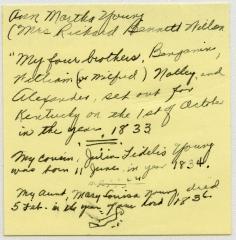 Ann Martha Young
(Mrs Richard Bennett Willson
"My four brothers, Benjamin,
William (or Wilfrid) Notley, and
Alexander, set out for
Kentucky on the 1st of October
in the year, 1833
My cousin, Julian Fidelis Young
was born 11 June, in year 1834.
My aunt, Mary Louisa Young, died
5 Feb. in the year of our Lord 1836.